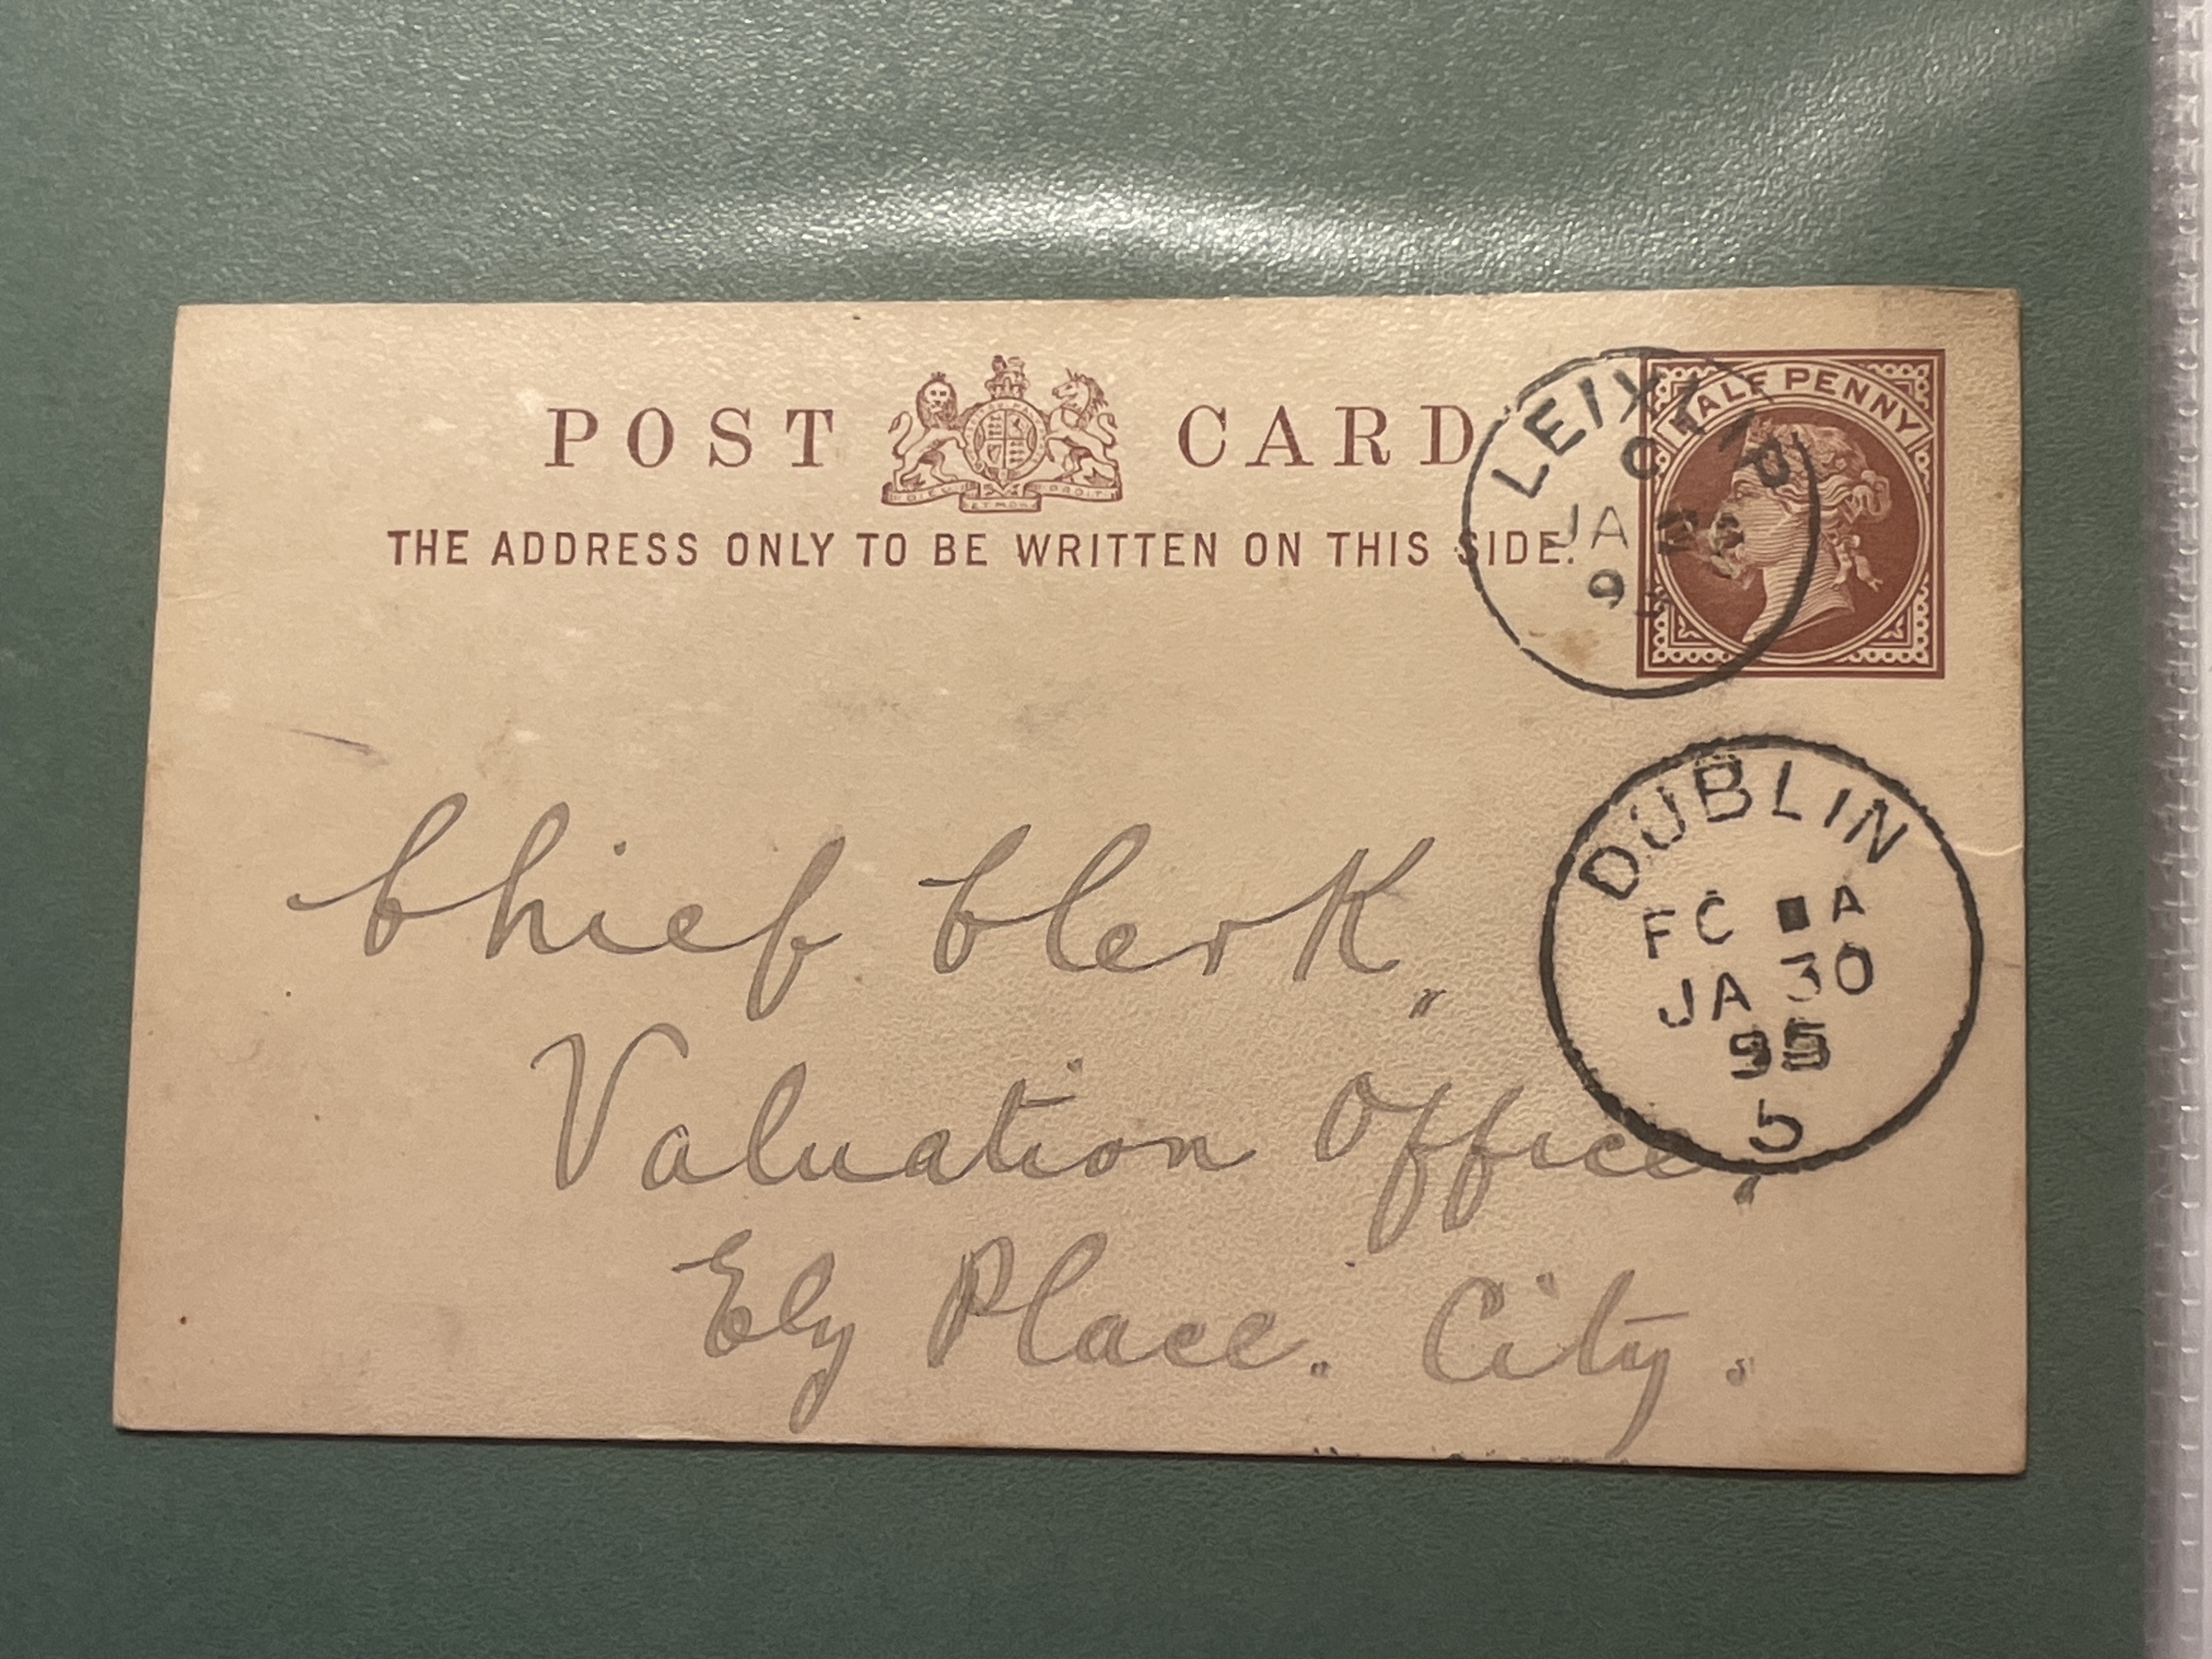 POST CARD
DIEU ET MON DROIT
THE ADDRESS ONLY TO BE WRITTEN ON THIS SIDE.
HALF PENNY
LEIXLIP
C
JA
9
DUBLIN
FC A
JA 30
95
5
Chief Clerk,
Valuation Office,
Ely Place. City.